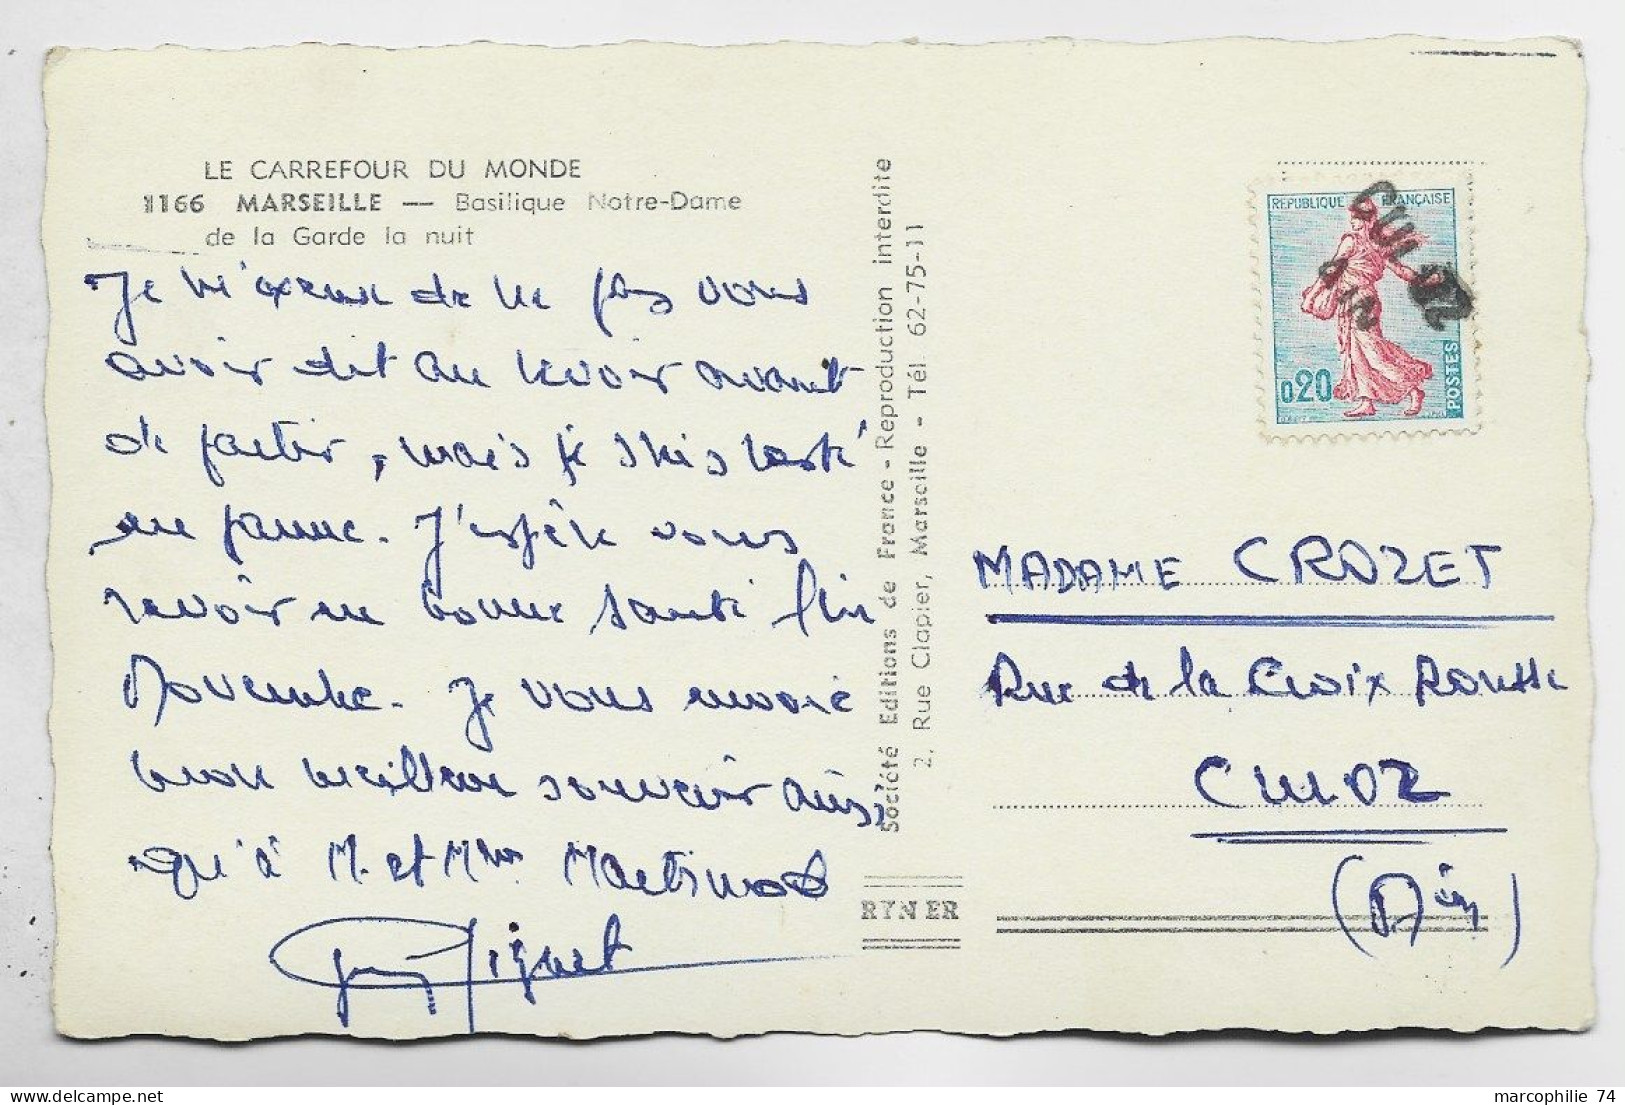 LE CARREFOUR DU MONDE
1166 MARSEILLE — Basilique Notre-Dame
de la Garde la nuit
Je m'excuse de ne pas vous
avoir dit au revoir avant
de partir, mais je suis resté
en panne. J'espère vous
revoir en bonne santé fin
Novembre. Je vous envoie
mon meilleur souvenir ainsi
qu'à M. et Mme
Société Editions de France - Reproduction interdite
2, Rue Clapier, Marseille - Tél. 62-75-11
RYNER
REPUBLIQUE FRANÇAISE
0,20
POSTES
CULOZ
AIN
MADAME CROZET
Rue de la Croix Rousse
CULOZ
(Ain)
marcophilie 74